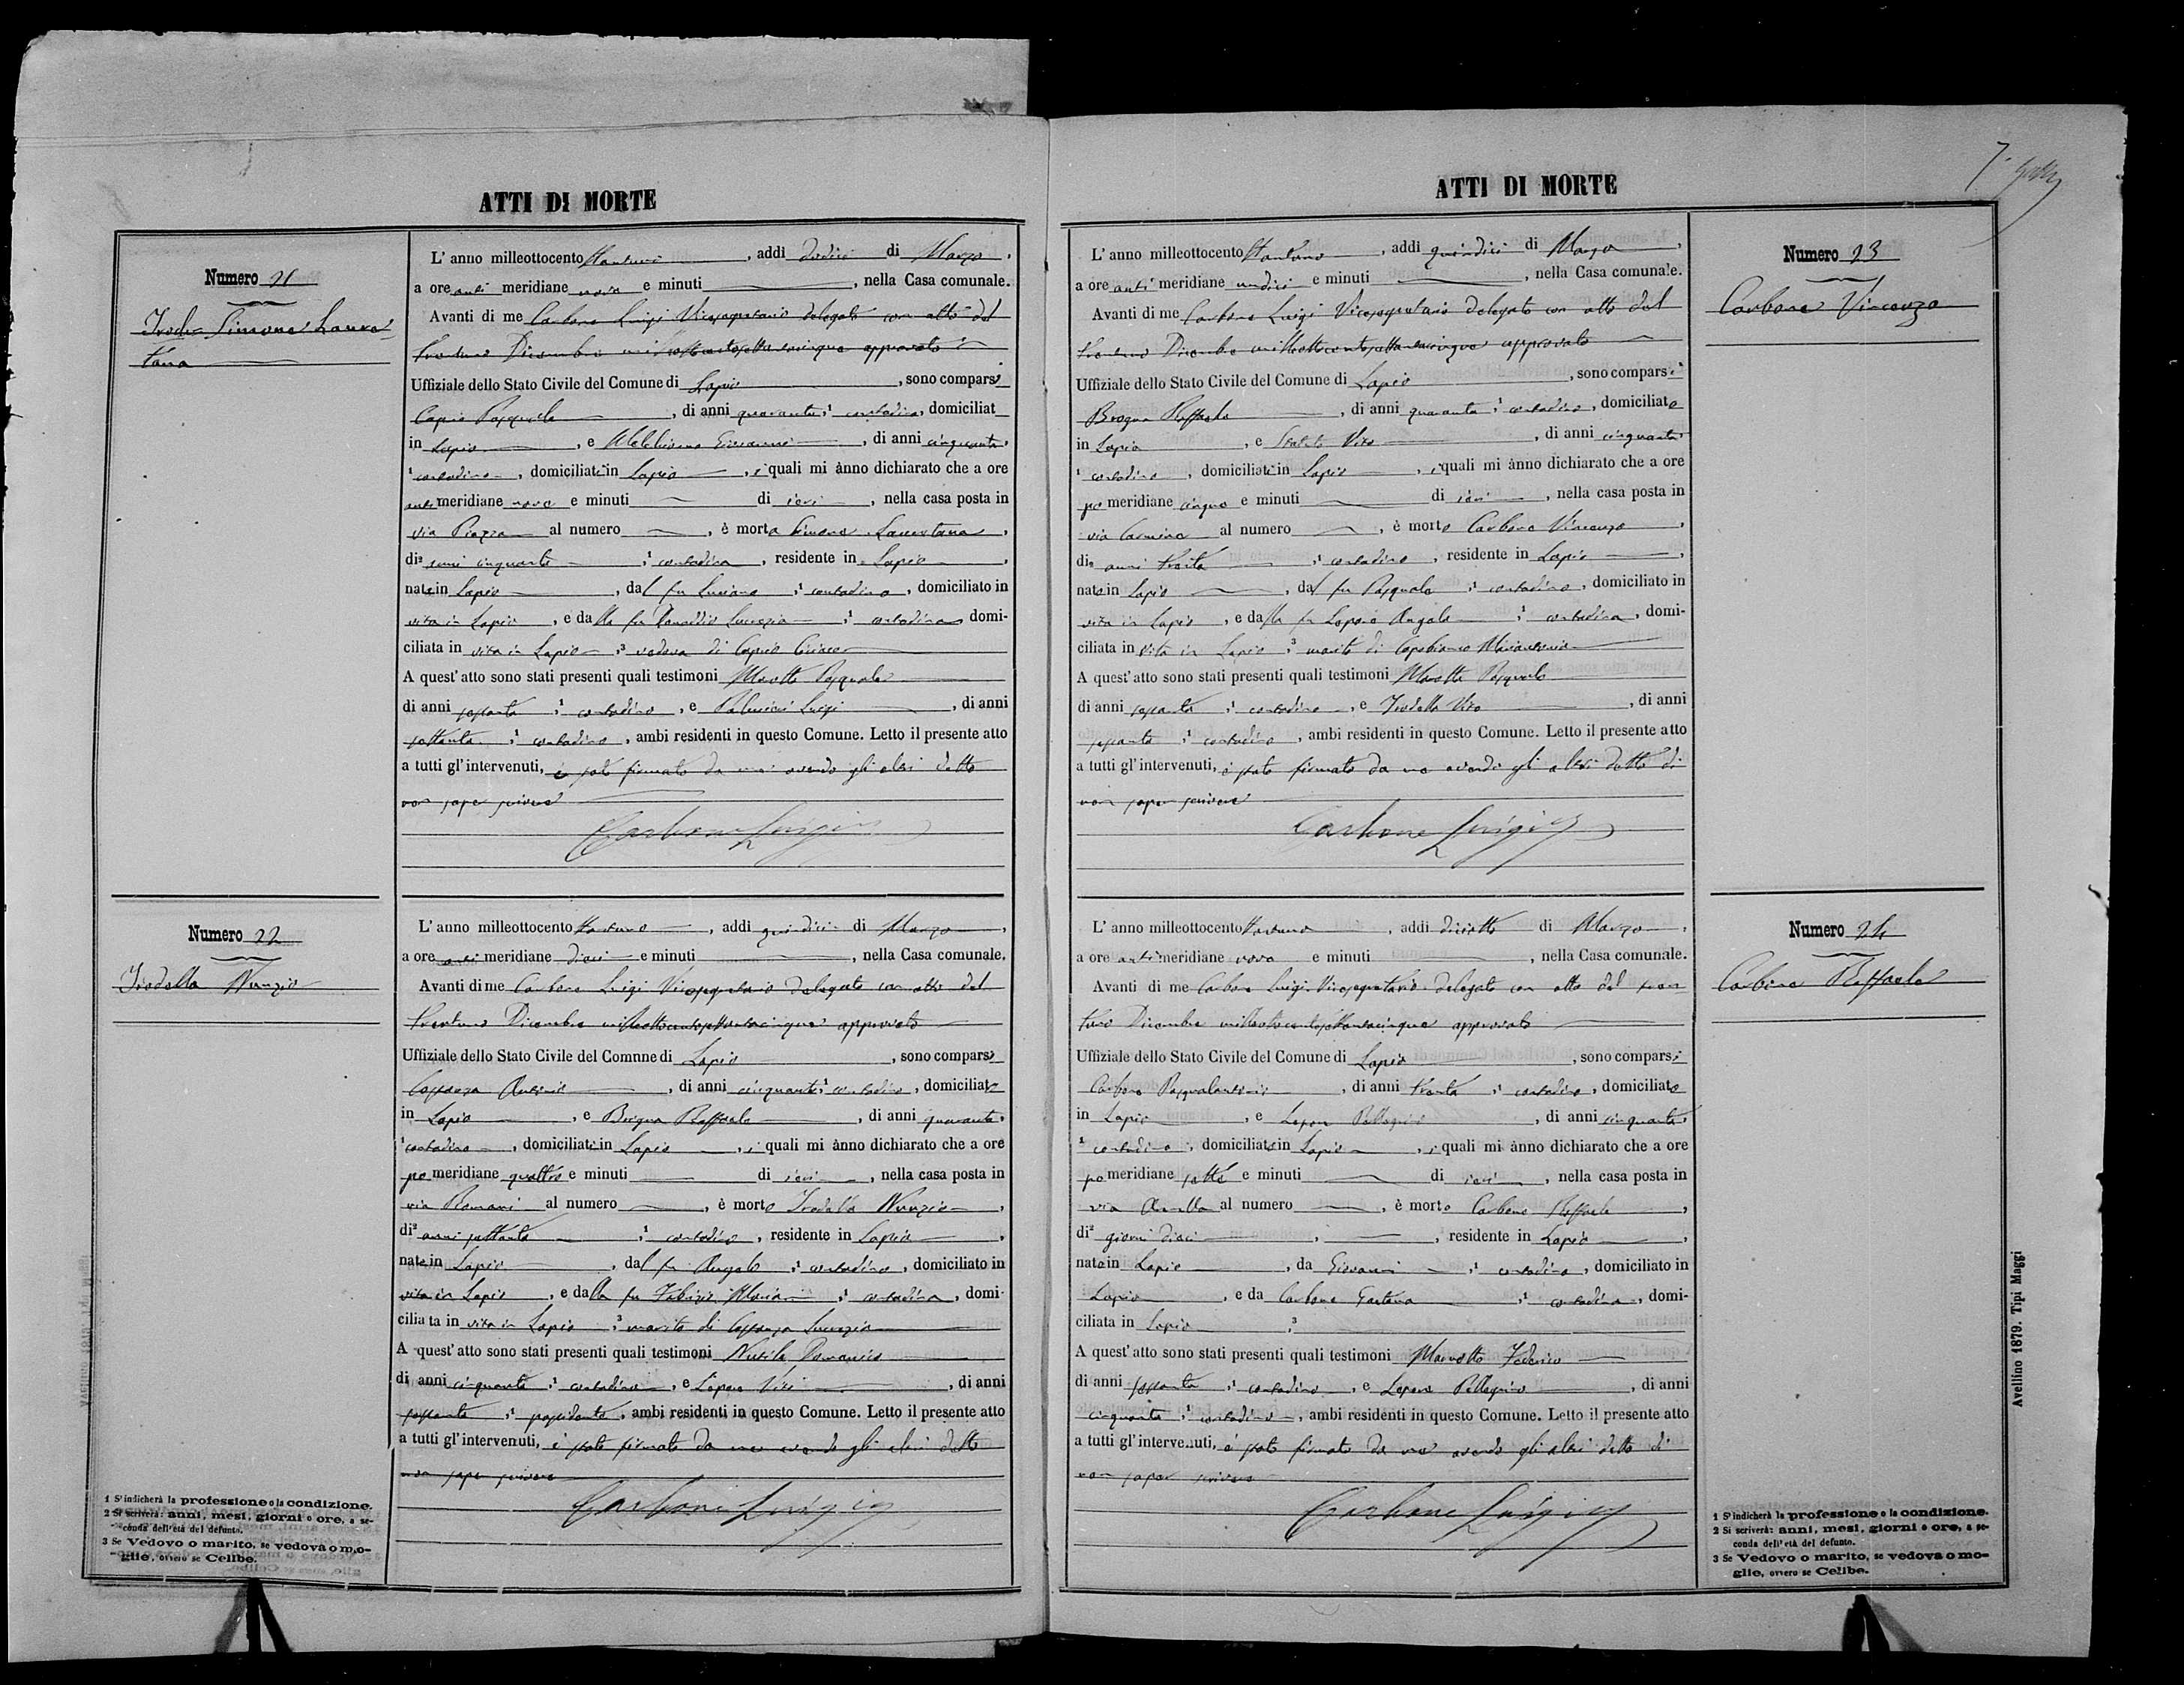 ATTI DI MORTE
Numero 21
Simone
L' anno milleottocento , addì dodici di Marzo ,
a ore anti meridiane nove e minuti , nella Casa comunale.
Avanti di me Carbone Luigi Vicesegretario delegato con atto del
trentuno Dicembre milleottocentosettantacinque approvato
Uffiziale dello Stato Civile del Comune di Lapio , sono comparsi
Caprio Pasquale , di anni quaranta ; 1 contadino, domiciliat
in Lapio , e Melchionno Giovanni , di anni cinquanta,
1 contadino , domiciliato in Lapio , i quali mi ànno dichiarato che a ore
anti meridiane nove e minuti di ieri , nella casa posta in
via Piazza al numero , è morta Simone Laurentana ,
di 2 anni cinquanta ; 1 contadina , residente in Lapio ,
nata in Lapio , dal fu Luciano ; 1 contadino , domiciliato in
vita in Lapio , e dalla fu Lucrezia ; 1 contadina domi-
ciliata in vita in Lapio ; 3 vedova di Caprio Ciriaco
A quest' atto sono stati presenti quali testimoni Pasquale
di anni sessanta ; 1 contadino , e Luigi , di anni
settanta ; 1 contadino , ambi residenti in questo Comune. Letto il presente atto
a tutti gl' intervenuti, è stato firmato da me avendo gli altri detto
non saper scrivere
Carbone Luigi
Numero 22
Irodella Nunzio
L' anno milleottocento , addì quindici di Marzo ,
a ore anti meridiane dieci e minuti , nella Casa comunale.
Avanti di me Carbone Luigi Vicesegretario delegato con atto del
trentuno Dicembre milleottocentosettantacinque approvato
Uffiziale dello Stato Civile del Comnne di Lapio , sono comparsi
Antonio , di anni cinquanta ; 1 contadino , domiciliato
in Lapio , e Raffaele , di anni quaranta,
1 contadino , domiciliato in Lapio , i quali mi ànno dichiarato che a ore
po meridiane quattro e minuti di ieri , nella casa posta in
via Romani al numero , è morto Irodella Nunzio ,
di 2 anni settanta ; 1 contadino , residente in Lapio ,
nato in Lapio , dal fu Angelo ; 1 contadino , domiciliato in
vita in Lapio , e dalla fu Fabrizio Maria ; 1 contadina , domi-
ciliata in vita in Lapio ; 3 marito di Lucrezia
A quest' atto sono stati presenti quali testimoni Domenico
di anni cinquanta ; 1 contadino , e Lepore Vito , di anni
sessanta ; 1 possidente , ambi residenti in questo Comune. Letto il presente atto
a tutti gl' intervenuti, è stato firmato da me avendo gli altri detto
non saper scrivere
Carbone Luigi
1 S' indicherà la professione o la condizione.
2 Si scriverà: anni, mesi, giorni o ore, a se-
conda dell' età del defunto.
3 Se Vedovo o marito, se vedova o mo-
glie, ovvero se Celibe.
ATTI DI MORTE
Numero 23
Carbone Vincenzo
L' anno milleottocento , addì quindici di Marzo ,
a ore anti meridiane undici e minuti , nella Casa comunale.
Avanti di me Carbone Luigi Vicesegretario delegato con atto del
trentuno Dicembre milleottocentosettantacinque approvato
Uffiziale dello Stato Civile del Comune di Lapio , sono comparsi
Raffaele , di anni quaranta ; 1 contadino , domiciliato
in Lapio , e Vito , di anni cinquanta
1 contadino , domiciliato in Lapio , i quali mi ànno dichiarato che a ore
po meridiane cinque e minuti di ieri , nella casa posta in
via Carmine al numero , è morto Carbone Vincenzo ,
di 2 anni trenta ; 1 contadino , residente in Lapio ,
nato in Lapio , dal fu Pasquale ; 1 contadino , domiciliato in
vita in Lapio , e dalla fu Lepore Angela ; 1 contadina , domi-
ciliata in vita in Lapio ; 3 marito di Capobianco Mariantonia
A quest' atto sono stati presenti quali testimoni Pasquale
di anni sessanta ; 1 contadino , e Irodella Vito , di anni
sessanta ; 1 contadino , ambi residenti in questo Comune. Letto il presente atto
a tutti gl' intervenuti, è stato firmato da me avendo gli altri detto di
non saper scrivere
Carbone Luigi
Numero 24
Carbone Raffaele
L' anno milleottocento , addì diciotto di Marzo ,
a ore anti meridiane nove e minuti , nella Casa comunale.
Avanti di me Carbone Luigi Vicesegretario delegato con atto del tren-
tuno Dicembre milleottocentosettantacinque approvato
Uffiziale dello Stato Civile del Comune di Lapio , sono comparsi
Carbone Pasqualantonio , di anni trenta ; 1 contadino , domiciliato
in Lapio , e Lepore Pellegrino , di anni cinquanta
1 contadino , domiciliato in Lapio , i quali mi ànno dichiarato che a ore
po meridiane sette e minuti di ieri , nella casa posta in
via al numero , è morto Carbone Raffaele ,
di 2 giorni dieci , , residente in Lapio ,
nato in Lapio , da Giovanni ; 1 contadino , domiciliato in
Lapio , e da Carbone Gaetana ; 1 contadina , domi-
ciliata in Lapio ; 3
A quest' atto sono stati presenti quali testimoni Federico
di anni sessanta ; 1 contadino , e Lepore Pellegrino , di anni
cinquanta ; 1 contadino , ambi residenti in questo Comune. Letto il presente atto
a tutti gl' intervenuti, è stato firmato da me avendo gli altri detto di
non saper scrivere
Carbone Luigi
1 S' indicherà la professione o la condizione.
2 Si scriverà: anni, mesi, giorni o ore, a se-
conda dell' età del defunto.
3 Se Vedovo o marito, se vedova o mo-
glie, ovvero se Celibe.
Avellino 1879. Tipi Maggi